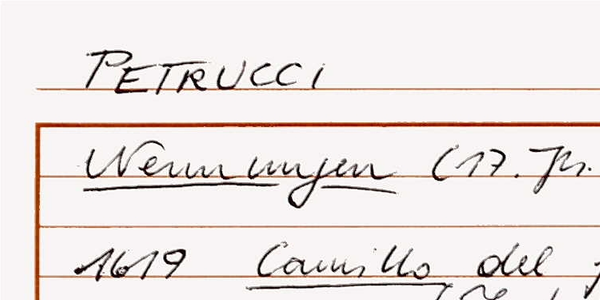 PETRUCCI
Nennungen (17. Jh.
1619 Camillo del